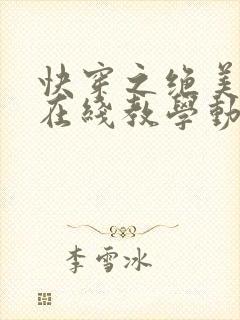 快穿之绝美
在线教学動
李雪冰